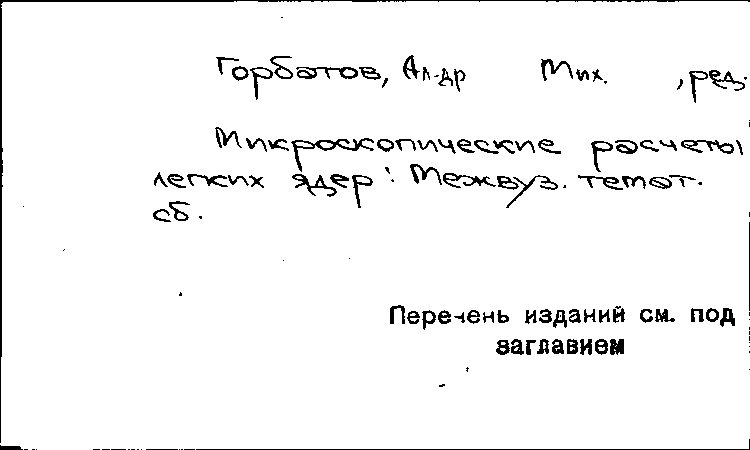 Горбатов, Ал-др Мих. , ред.
Микроскопические расчеты
легких ядер : Межвуз. темат.
сб.
Перечень изданий см. под
заглавием